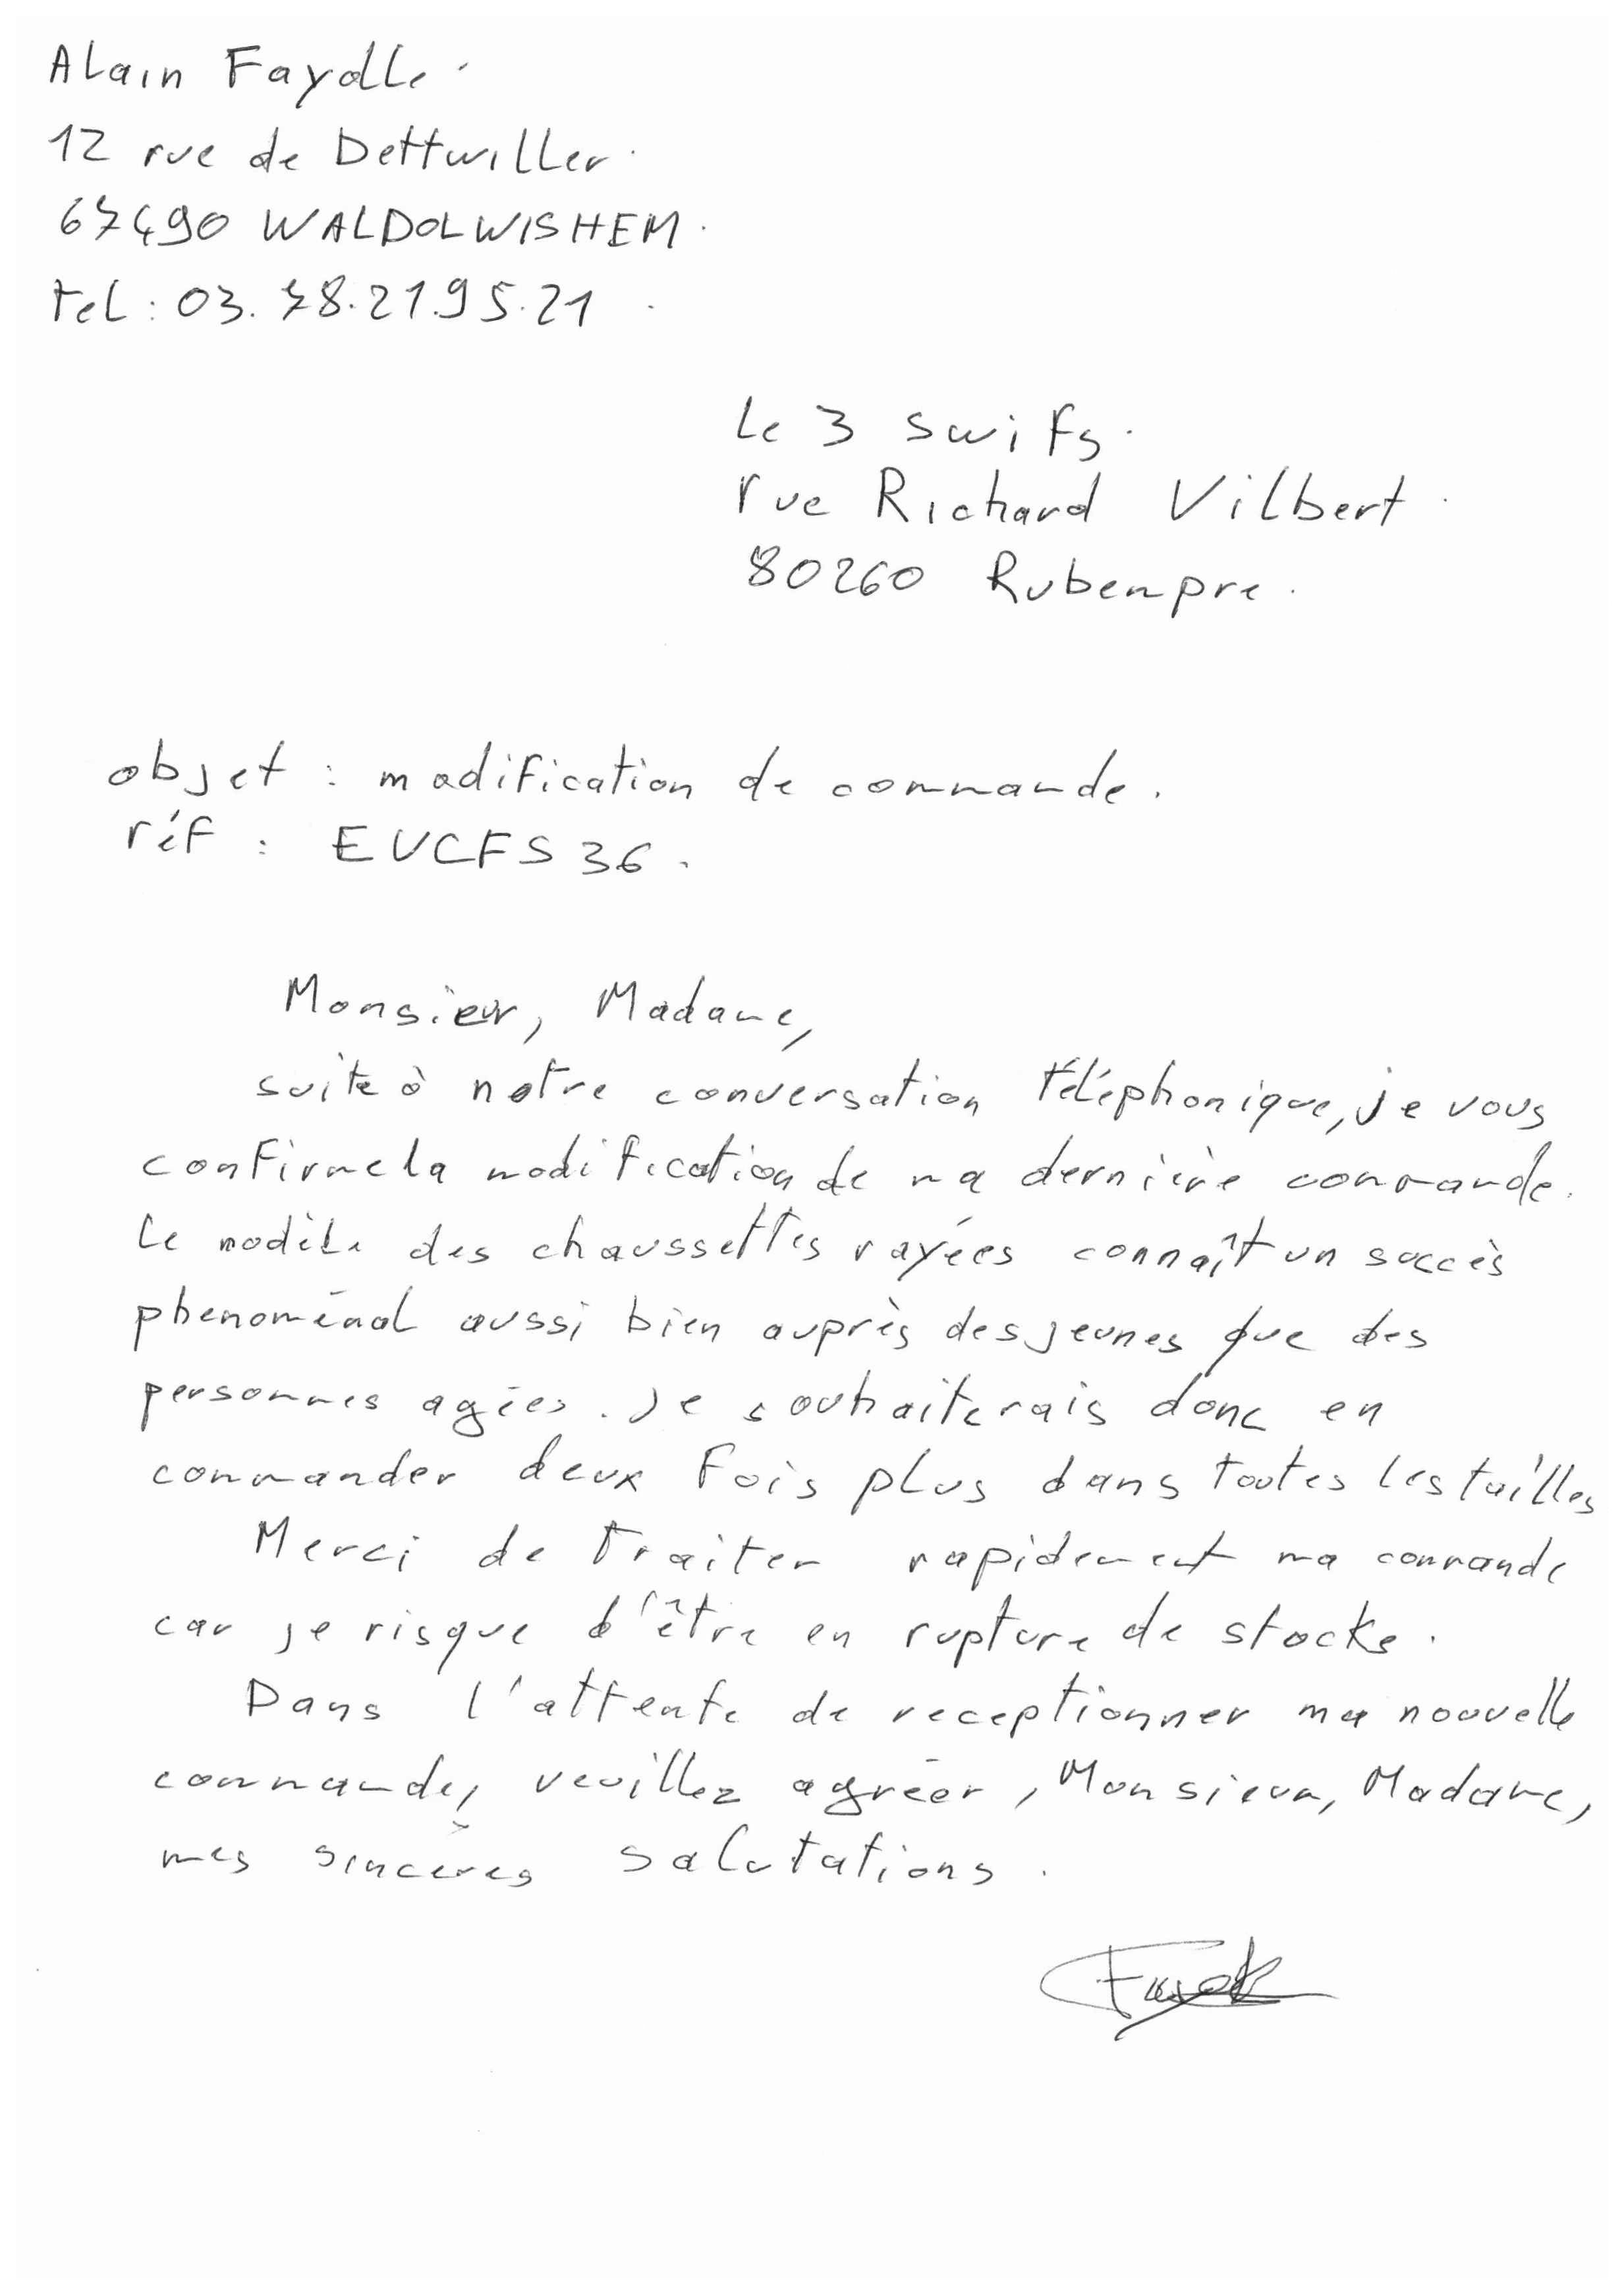 Alain Fayolle
12 rue de Dettwiller
67490 WALDOLWISHEM
tel : 03.78.21.95.21
Le 3 swifs
rue Richard Vilbert
80260 Rubempre
objet : modification de commande.
réf : EUCFS36
Monsieur, Madame,
suite à notre conversation téléphonique, je vous
confirme la modification de ma dernière commande.
Le modèle des chaussettes rayées connaît un succès
phenoménal aussi bien auprès des jeunes que des
personnes agées. Je souhaiterais donc en
commander deux fois plus dans toutes les tailles
Merci de traiter rapidement ma commande
car je risque d'être en rupture de stocks.
Dans l'attente de receptionner ma nouvelle
commande, veuillez agréer, Monsieur, Madame,
mes sincères salutations.